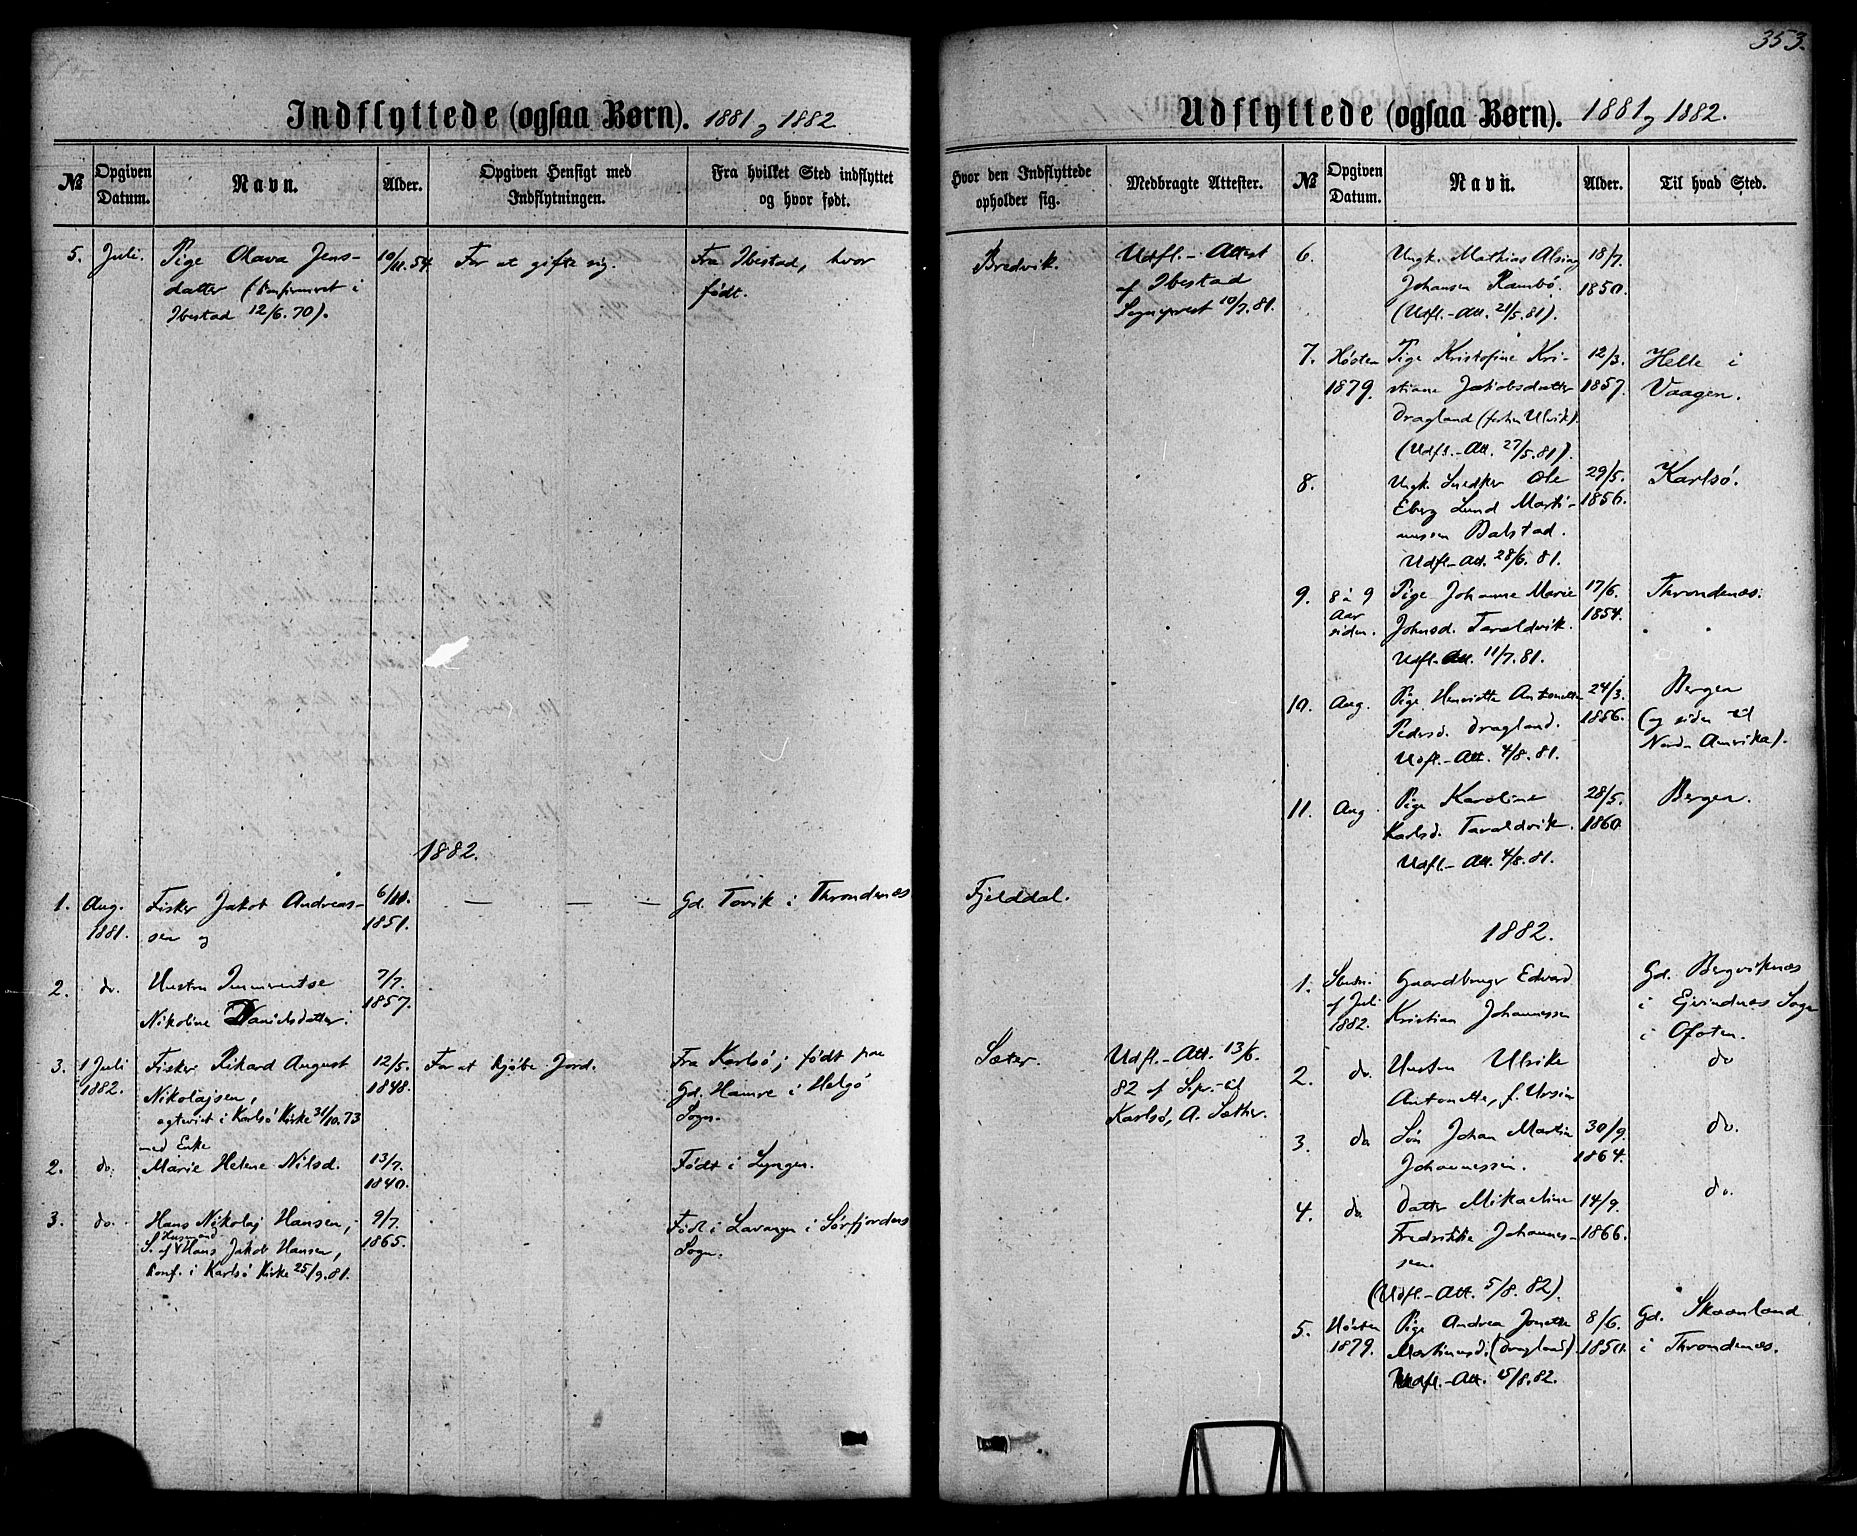 353.
Indflyttede (ogsaa Børn). 1881 og 1882
№
Opgiven Datum.
Navn.
Alder.
Opgiven Hensigt med Indflytningen.
Fra hvilket Sted indflyttet og hvor født.
Hvor den Indflyttede opholder sig.
Medbragte Attester.
5. Juli. Pige Olava Jens- 10/11.54 For at gifte sig. Fra Ibestad, hvor Bredvik. Udfl.-Attest
datter (konfirmeret i født. af Ibestad
Ibestad 12/6.70). Sogneprest 10/7.81.
1882.
1. Aug. Fisker Jakob Andreas- 6/10. — — — Gd. Tovik i Throndenæs Fjelddal.
1881. sen og 1851.
2. do. Hustru 7/7.
Nikoline Danielsdatter. 1857.
3. 1 Juli Fisker Rikard August 12/5. For at kjøbe Jord. Fra Karlsø; født paa Sæter. Udfl.-Att. 13/6.
1882. Nikolajsen, 1848. Gd. Hamre i Helgø 82 af Spr. til
egteviet i Karlsø Kirke 31/10.73 Sogn. Karlsø, A. Sæther.
med Enke
2. do. Marie Helene Nilsd. 13/7. Født i Lyngen.
1840.
3. do. Hans Nikolaj Hansen, 9/7. Født i Lavangen i Sørfjordens
Husmand
S. af Hans Jakob Hansen, 1865. Sogn.
konf. i Karlsø Kirke 25/9.81.
Udflyttede (ogsaa Børn). 1881 og 1882.
№
Opgiven Datum.
Navn.
Alder.
Til hvad Sted.
6. Ungk. Mathias Alsing 18/7.
Johansen Rambø. 1850.
(Udfl.-Att. 21/5.81).
7. Høsten Pige Kristofine Kri- 12/3. Helle i
1879. stiane Jakobsdatter 1857. Vaagen.
Dragland (forhen Ulvik).
(Udfl.-Att. 27/5.81).
8. Ungk. Snedker Ole 29/5. Karlsø.
Eberg Lund Marti- 1856.
nussen Balstad.
Udfl.-Att. 28/6. 81.
9. 8 à 9 Pige Johanna Marie 17/6. Throndenæs.
Aar Johnsd. Taraldvik. 1854.
siden. Udfl.-Att. 11/7.81.
10. Aug. Pige Henriette Antonette 24/3. Bergen
Pedersd. Dragland. 1856. (og siden til
Udfl.-Att. 4/8.81. Nord-Amerika).
11. Aug Pige Karoline 28/5. Bergen.
Karlsd. Taraldvik. 1860.
Udfl.-Att. 4/8.81.
1882.
1. Slutn. Gaardbruger Edvard Gd. Bergviknæs
af Juli Kristian Johannessen i Evindnæs Sogn
1882. i Ofoten.
2. do. Hustru Ulrike do
Antonette, f. Ursin
3. do Søn Johan Martin 30/9. do.
Johannessen. 1864.
4. do Datter Mikaeline 14/9. do.
Fredrikke Johannes- 1866.
sen.
(Udfl.-Att. 5/8.82).
5. Høsten Pige Andrea Jonette 8/6. Gd. Skaanland
1879. Martinusd. (Dragland). 1850. i Throndenæs.
Udfl.-Att. 15/8.82.